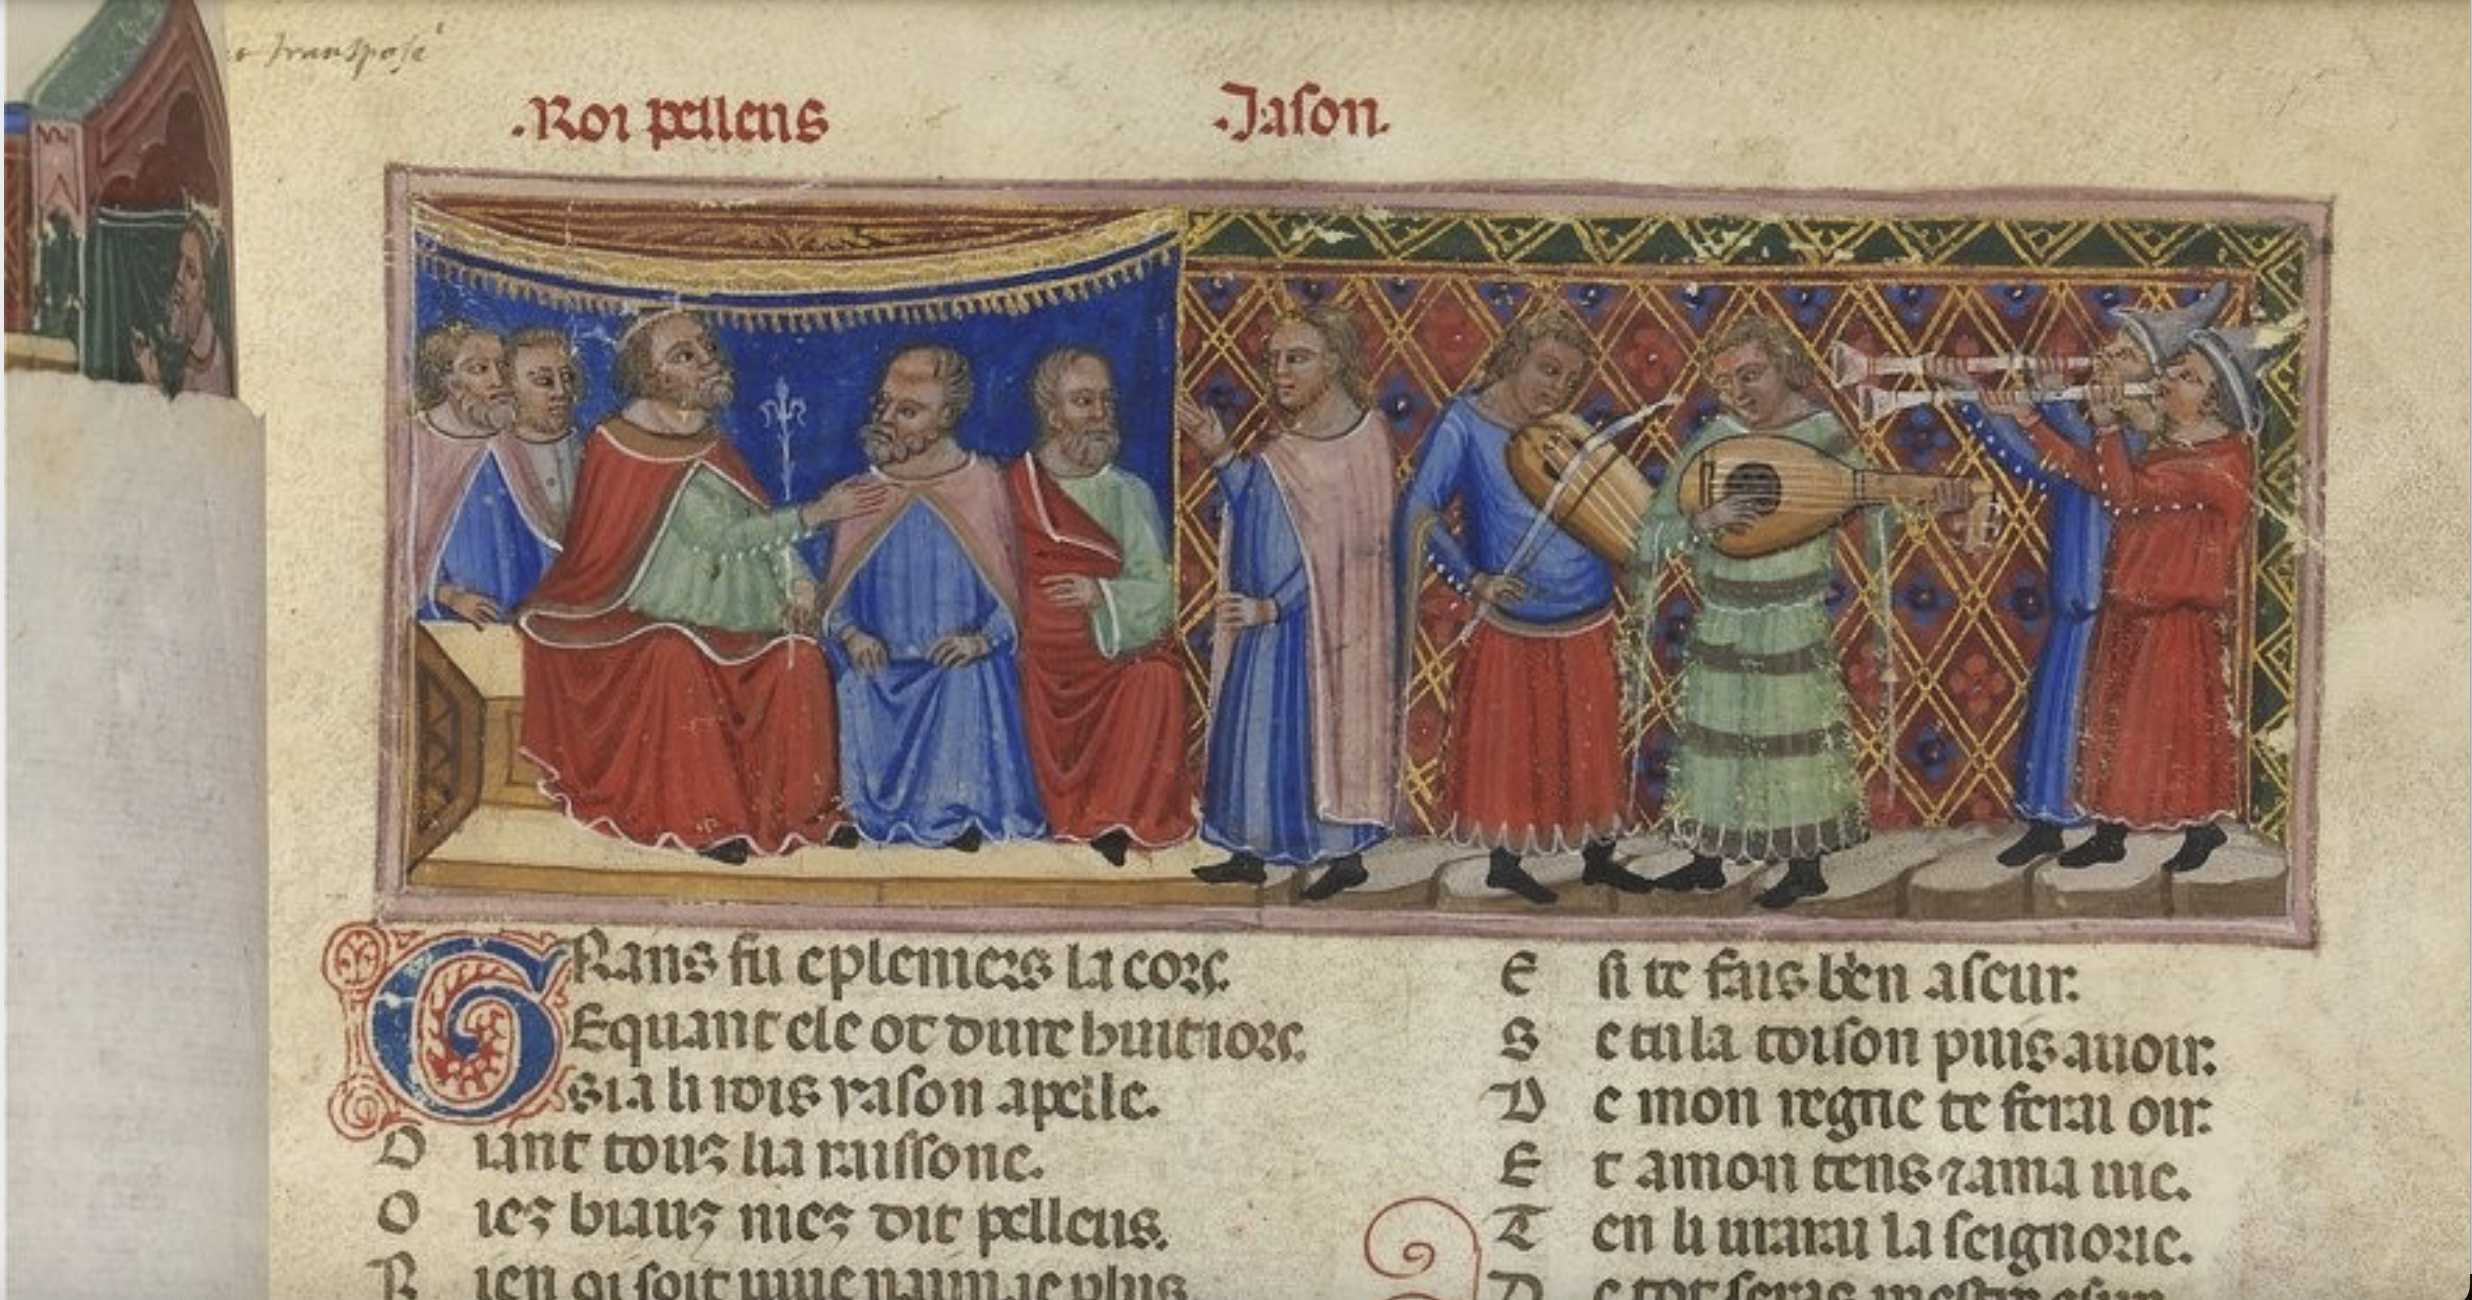 transposé
.Roi pelleus
.Jason.
GRans fu e pleniers la cors.
Equant ele ot dure huit iors.
Sia li rois iason apelle.
Oiant tous lia raissone.
Oiez biauz niez dit pelleus.
Rien qi soit uiue naim ie plus
E si te fais b'en aseur.
S e tu la toison puis auoir.
D e mon regne te ferai oir.
E t a mon tens ⁊ a ma uie.
T en liurarai la seignorie.
D e tot seras